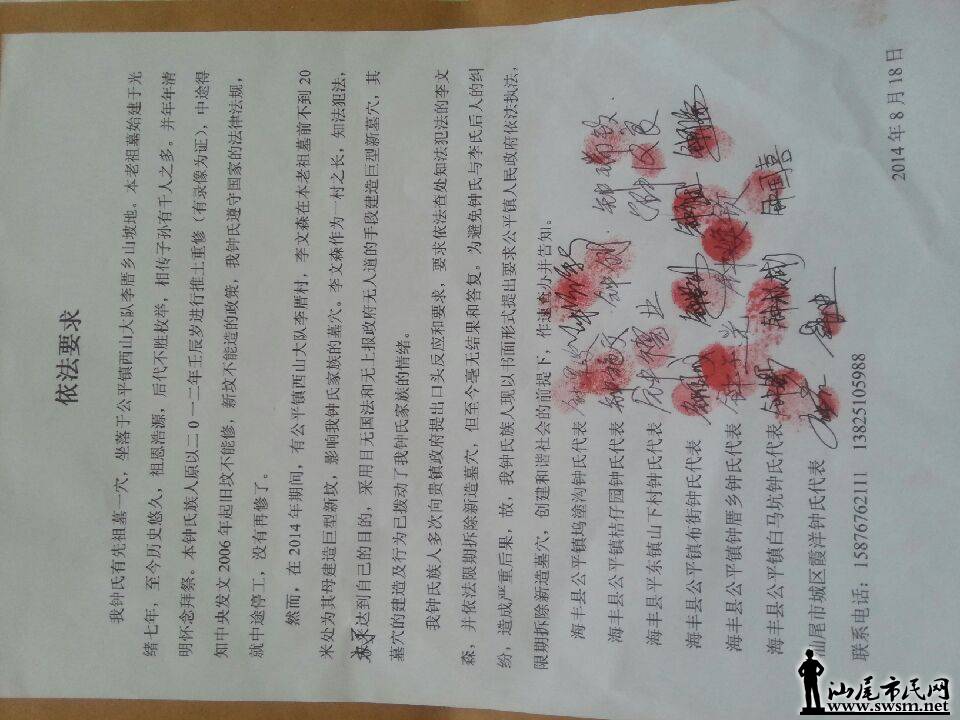 依法要求
我钟氏有先祖墓一穴，坐落于公平镇西山大队李厝乡山坡地。本老祖墓始建于光
绪七年，至今历史悠久，祖恩浩源，后代不胜枚举，相传子孙有千人之多。并年年清
明怀念拜祭。本钟氏族人原以二0一二年壬辰岁进行推土重修（有录像为证），中途得
知中央发文2006年起旧坟不能修，新坟不能造的政策，我钟氏遵守国家的法律法规，
就中途停工，没有再修了。
然而，在2014年期间，有公平镇西山大队李厝村，李文森在本老祖墓前不到20
米处为其母建造巨型新坟，影响我钟氏家族的墓穴。李文森作为一村之长，知法犯法，
为了来达到自己的目的，采用目无国法和无上报政府无人道的手段建造巨型新墓穴，其
墓穴的建造及行为已拨动了我钟氏家族的情绪。
我钟氏族人多次向贵镇政府提出口头反应和要求，要求依法查处知法犯法的李文
森，并依法限期拆除新造墓穴，但至今毫无结果和答复。为避免钟氏与李氏后人的纠
纷，造成严重后果，故，我钟氏族人现以书面形式提出要求公平镇人民政府依法执法，
限期拆除新造墓穴，创建和谐社会的前提下，作速查办并告知。
海丰县公平镇坞塗沟钟氏代表
海丰县公平镇桔仔园钟氏代表
海丰县平东镇山下村钟氏代表
海丰县公平镇布街钟氏代表
海丰县公平镇钟厝乡钟氏代表
海丰县公平镇白马坑钟氏代表
汕尾市城区霞洋钟氏代表
联系电话：15876762111 13825105988
2014年8月18日
汕尾市民网
www.swsm.net